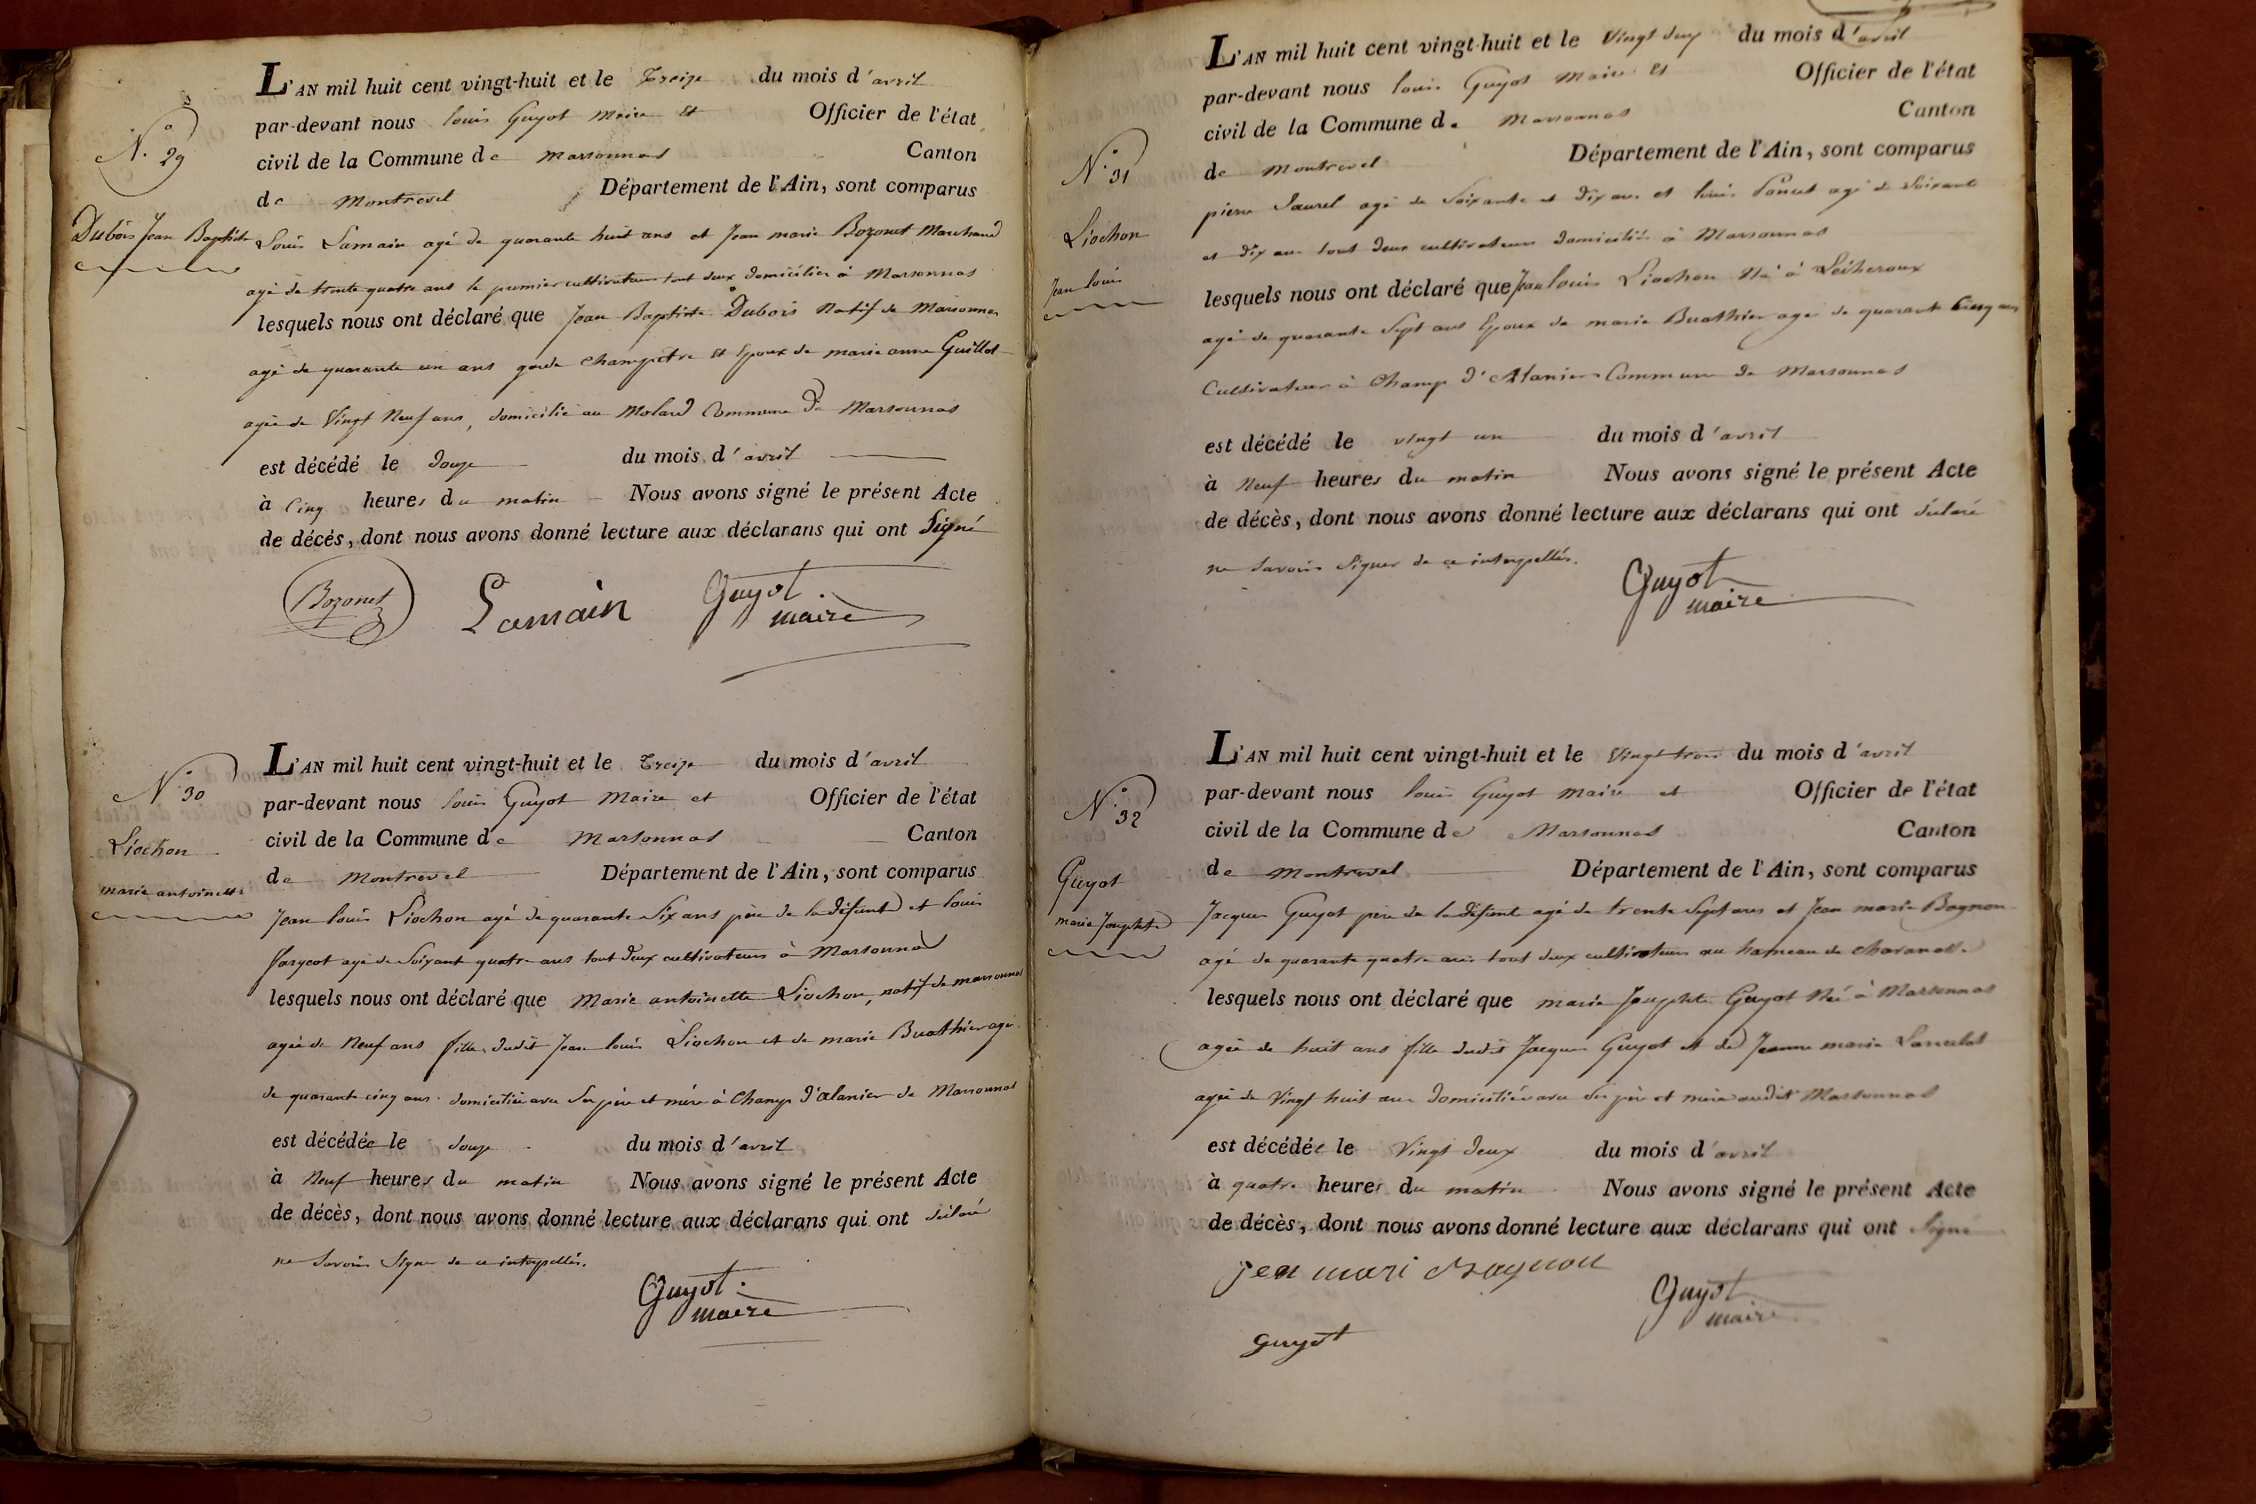 N.° 29
Dubois Jean Baptiste
L'AN mil huit cent vingt-huit et le Treize du mois d'avril
par-devant nous louis Guyot Maire et Officier de l'état
civil de la Commune de Marsonnas Canton
de Montrevel Département de l'Ain, sont comparus
Louis Lamain agé de quarante huit ans et Jean marie Bozonet Marchand
agé de trente quatre ans le premier cultivateur tout deux domicilier à Marsonnas
lesquels nous ont déclaré que Jean Baptiste Dubois Natif de Marsonnas
agé de quarante un ans garde champetre et Epoux de marie anne Guillot
agée de Vingt Neuf ans, domicilié au Molard Commune De Marsonnas
est décédé le douze du mois d'avril
à Cinq heures du matin Nous avons signé le présent Acte
de décés, dont nous avons donné lecture aux déclarans qui ont Signé
Bozonet Lamain Guyot
maire
N.° 30
Liochon
marie antoinette
L'AN mil huit cent vingt-huit et le Treize du mois d'avril
par-devant nous louis Guyot Maire et Officier de l'état
civil de la Commune de Marsonnas Canton
de Montrevel Département de l'Ain, sont comparus
Jean louis Liochon agé de quarante Six ans père de la défunte et louis
agé de Soixant quatre ans tout deux cultivateurs à Marsonnas
lesquels nous ont déclaré que Marie antoinette Liochon, natif de marsonnas
agée de Neuf ans fille dudit Jean louis Liochon et de marie Buathier agé
de quarante cinq ans domiciliée avec Ses père et mère à Champ d'alanier de Marsonnas
est décédée le douze du mois d'avril
à Neuf heures du matin Nous avons signé le présent Acte
de décès, dont nous avons donné lecture aux déclarans qui ont déclaré
ne Savoir Signer de ce interpellés.
Guyot
maire
N.° 31
Liochon
Jean louis
L'AN mil huit cent vingt-huit et le Vingt deux du mois d'avril
par-devant nous louis Guyot Maire et Officier de l'état
civil de la Commune de Marsonnas Canton
de Montrevel Département de l'Ain, sont comparus
pierre Jaurel agé de Soixante et dix ans et louis Poncet agé de Soixante
et dix ans tout deux cultivateurs domiciliés à Marsonnas
lesquels nous ont déclaré que Jean louis Liochon Né à Lescheroux
agé de quarante Sept ans Epoux de marie Buathier agée de quarante Cinq ans
Cultivateur à Champ d'Alanier Commune de Marsonnas
est décédé le vingt un du mois d'avril
à Neuf heures du matin Nous avons signé le présent Acte
de décès, dont nous avons donné lecture aux déclarans qui ont déclaré
ne Savoir Signer de ce interpellés.
Guyot
maire
N.° 32
Guyot
marie Josephte
L'AN mil huit cent vingt-huit et le Vingt trois du mois d'avril
par-devant nous louis Guyot Maire et Officier de l'état
civil de la Commune de Marsonnas Canton
de Montrevel Département de l'Ain, sont comparus
Jacques Guyot père de la défunte agé de trente Sept ans et Jean marie Bagnon
agé de quarante quatre ans tout deux cultivateurs au hameau de
lesquels nous ont déclaré que marie Josephte Guyot Née à Marsonnas
agée de huit ans fille dudit Jacques Guyot et de Jeanne marie Lancelot
agée de Vingt huit ans domiciliée avec Ses père et mère audit Marsonnas
est décédée le Vingt deux du mois d'avril
à quatre heures du matin Nous avons signé le présent Acte
de décès, dont nous avons donné lecture aux déclarans qui ont Signé
jean mari Bagnon
Guyot
maire
guyot